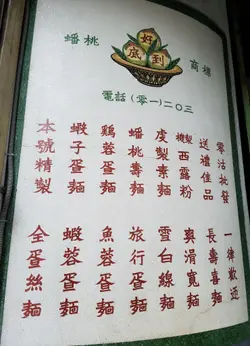 蟠桃
好到底
商標
電話(零一)二〇三
零沽批發
送禮佳品
機製西露粉
虔製素麵
蟠桃壽麵
鷄蓉蛋麵
蝦子蛋麵
本號精製
一律歡迎
長壽喜麵
爽滑寬麵
雪白線麵
旅行蛋麵
魚蓉蛋麵
蝦蓉蛋麵
全蛋絲麵